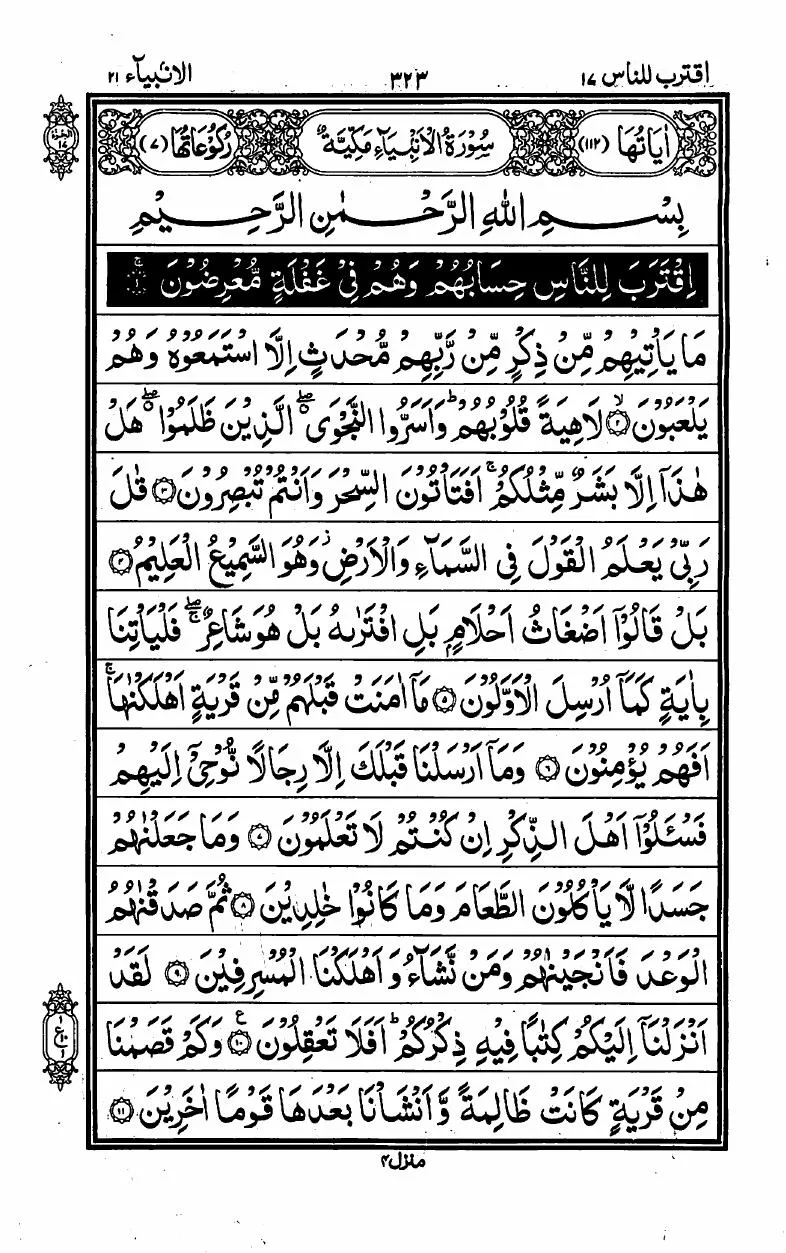 اقترب للناس ١٧
٣٢٣
الانبیآء ٢١
اٰیَاتُهَا (١١٢)
سُوْرَةُ الْاَنْۢبِيَآءِ مَكِّيَّةٌ
رُكُوْعَاتُهَا (٧)
بِسْمِ اللهِ الرَّحْمٰنِ الرَّحِيْمِ
اِقْتَرَبَ لِلنَّاسِ حِسَابُهُمْ وَهُمْ فِيْ غَفْلَةٍ مُّعْرِضُوْنَ ۚ ١
مَا يَاْتِيْهِمْ مِّنْ ذِكْرٍ مِّنْ رَّبِّهِمْ مُّحْدَثٍ اِلَّا اسْتَمَعُوْهُ وَهُمْ
يَلْعَبُوْنَ ۙ ٢ لَاهِيَةً قُلُوْبُهُمْ ؕ وَاَسَرُّوا النَّجْوَى ۖ الَّذِيْنَ ظَلَمُوْا ۖ هَلْ
هٰذَآ اِلَّا بَشَرٌ مِّثْلُكُمْ ۚ اَفَتَاْتُوْنَ السِّحْرَ وَاَنْتُمْ تُبْصِرُوْنَ ٣ قٰلَ
رَبِّيْ يَعْلَمُ الْقَوْلَ فِي السَّمَآءِ وَالْاَرْضِ ز وَهُوَ السَّمِيْعُ الْعَلِيْمُ ٤
بَلْ قَالُوْٓا اَضْغَاثُ اَحْلَامٍۭ بَلِ افْتَرٰىهُ بَلْ هُوَ شَاعِرٌ ۖۚ فَلْيَاْتِنَا
بِاٰيَةٍ كَمَآ اُرْسِلَ الْاَوَّلُوْنَ ٥ مَآ اٰمَنَتْ قَبْلَهُمْ مِّنْ قَرْيَةٍ اَهْلَكْنٰهَا ۚ
اَفَهُمْ يُؤْمِنُوْنَ ٦ وَمَآ اَرْسَلْنَا قَبْلَكَ اِلَّا رِجَالًا نُّوْحِيْٓ اِلَيْهِمْ
فَسْـَٔلُوْٓا اَهْلَ الذِّكْرِ اِنْ كُنْتُمْ لَا تَعْلَمُوْنَ ٧ وَمَا جَعَلْنٰهُمْ
جَسَدًا لَّا يَاْكُلُوْنَ الطَّعَامَ وَمَا كَانُوْا خٰلِدِيْنَ ٨ ثُمَّ صَدَقْنٰهُمُ
الْوَعْدَ فَاَنْجَيْنٰهُمْ وَمَنْ نَّشَآءُ وَاَهْلَكْنَا الْمُسْرِفِيْنَ ٩ لَقَدْ
اَنْزَلْنَآ اِلَيْكُمْ كِتٰبًا فِيْهِ ذِكْرُكُمْ ؕ اَفَلَا تَعْقِلُوْنَ ١٠ ع وَكَمْ قَصَمْنَا
مِنْ قَرْيَةٍ كَانَتْ ظَالِمَةً وَّاَنْشَاْنَا بَعْدَهَا قَوْمًا اٰخَرِيْنَ ١١
منزل ٤